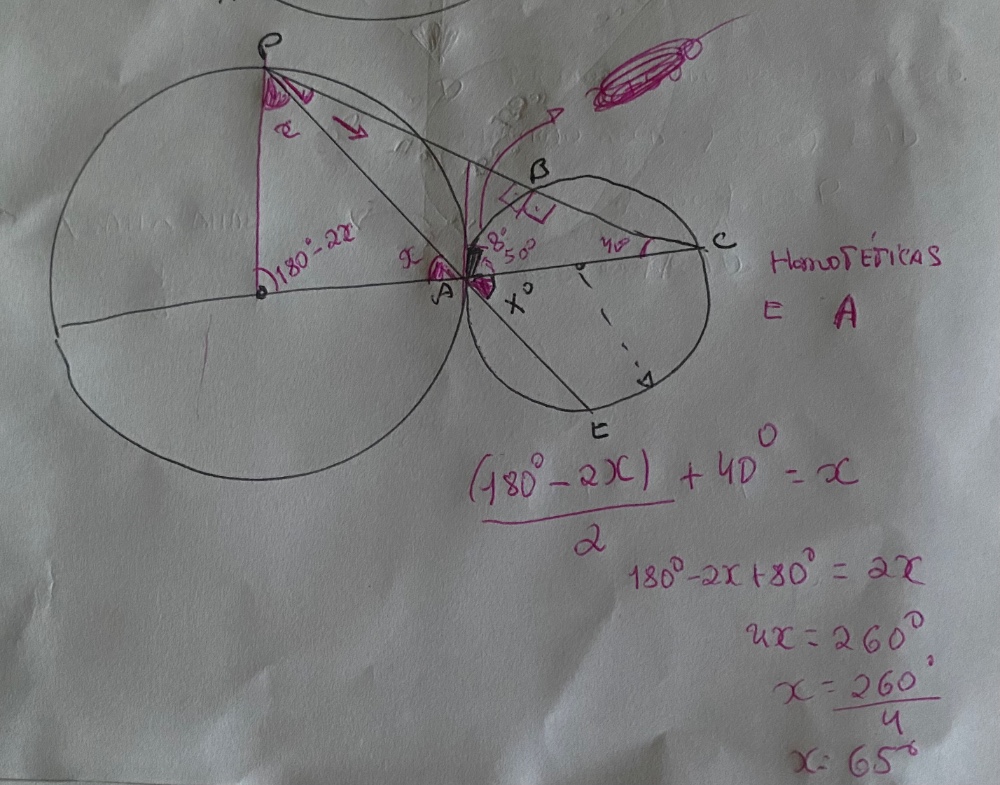 P
x
B
180° - 2x
x
8°
50°
40°
C
A
x°
HOMOTÉTICAS
E A
E
(180° - 2x) + 40° = x
2
180° - 2x + 80° = 2x
4x = 260°
x = 260°
4
x = 65°